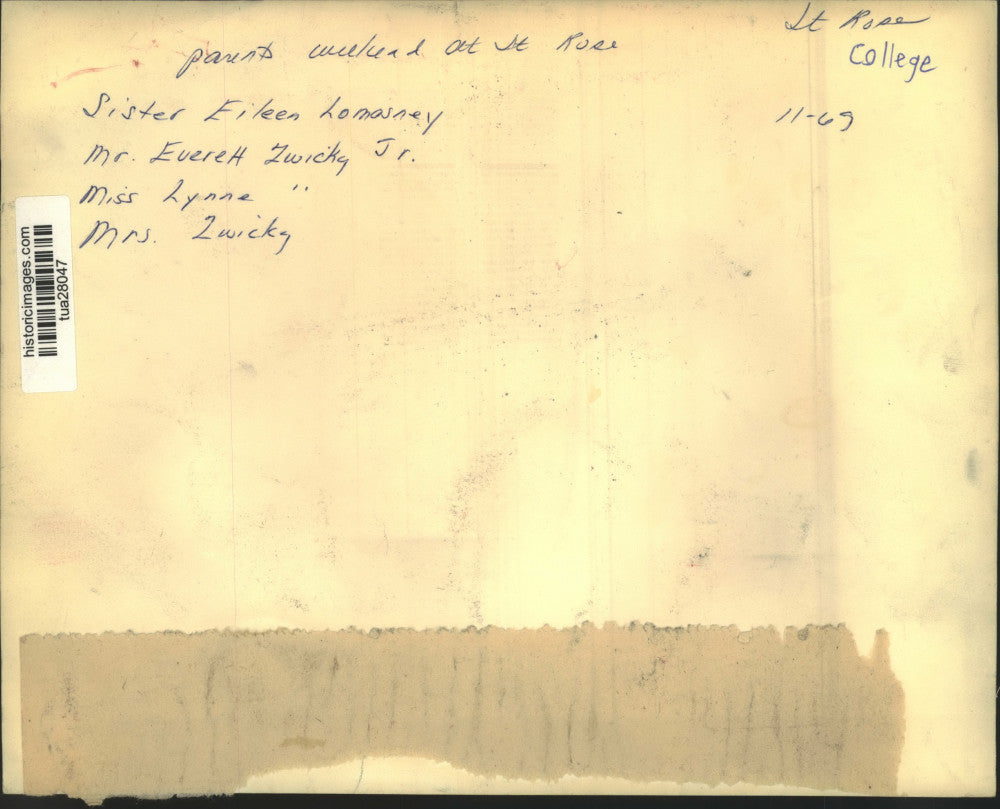 St Rose
College
parents weekend at St Rose
Sister Eileen Lomasney
11-69
Mr. Everett Zwicky Jr.
Miss Lynne "
Mrs. Zwicky
historicimages.com
tua28047